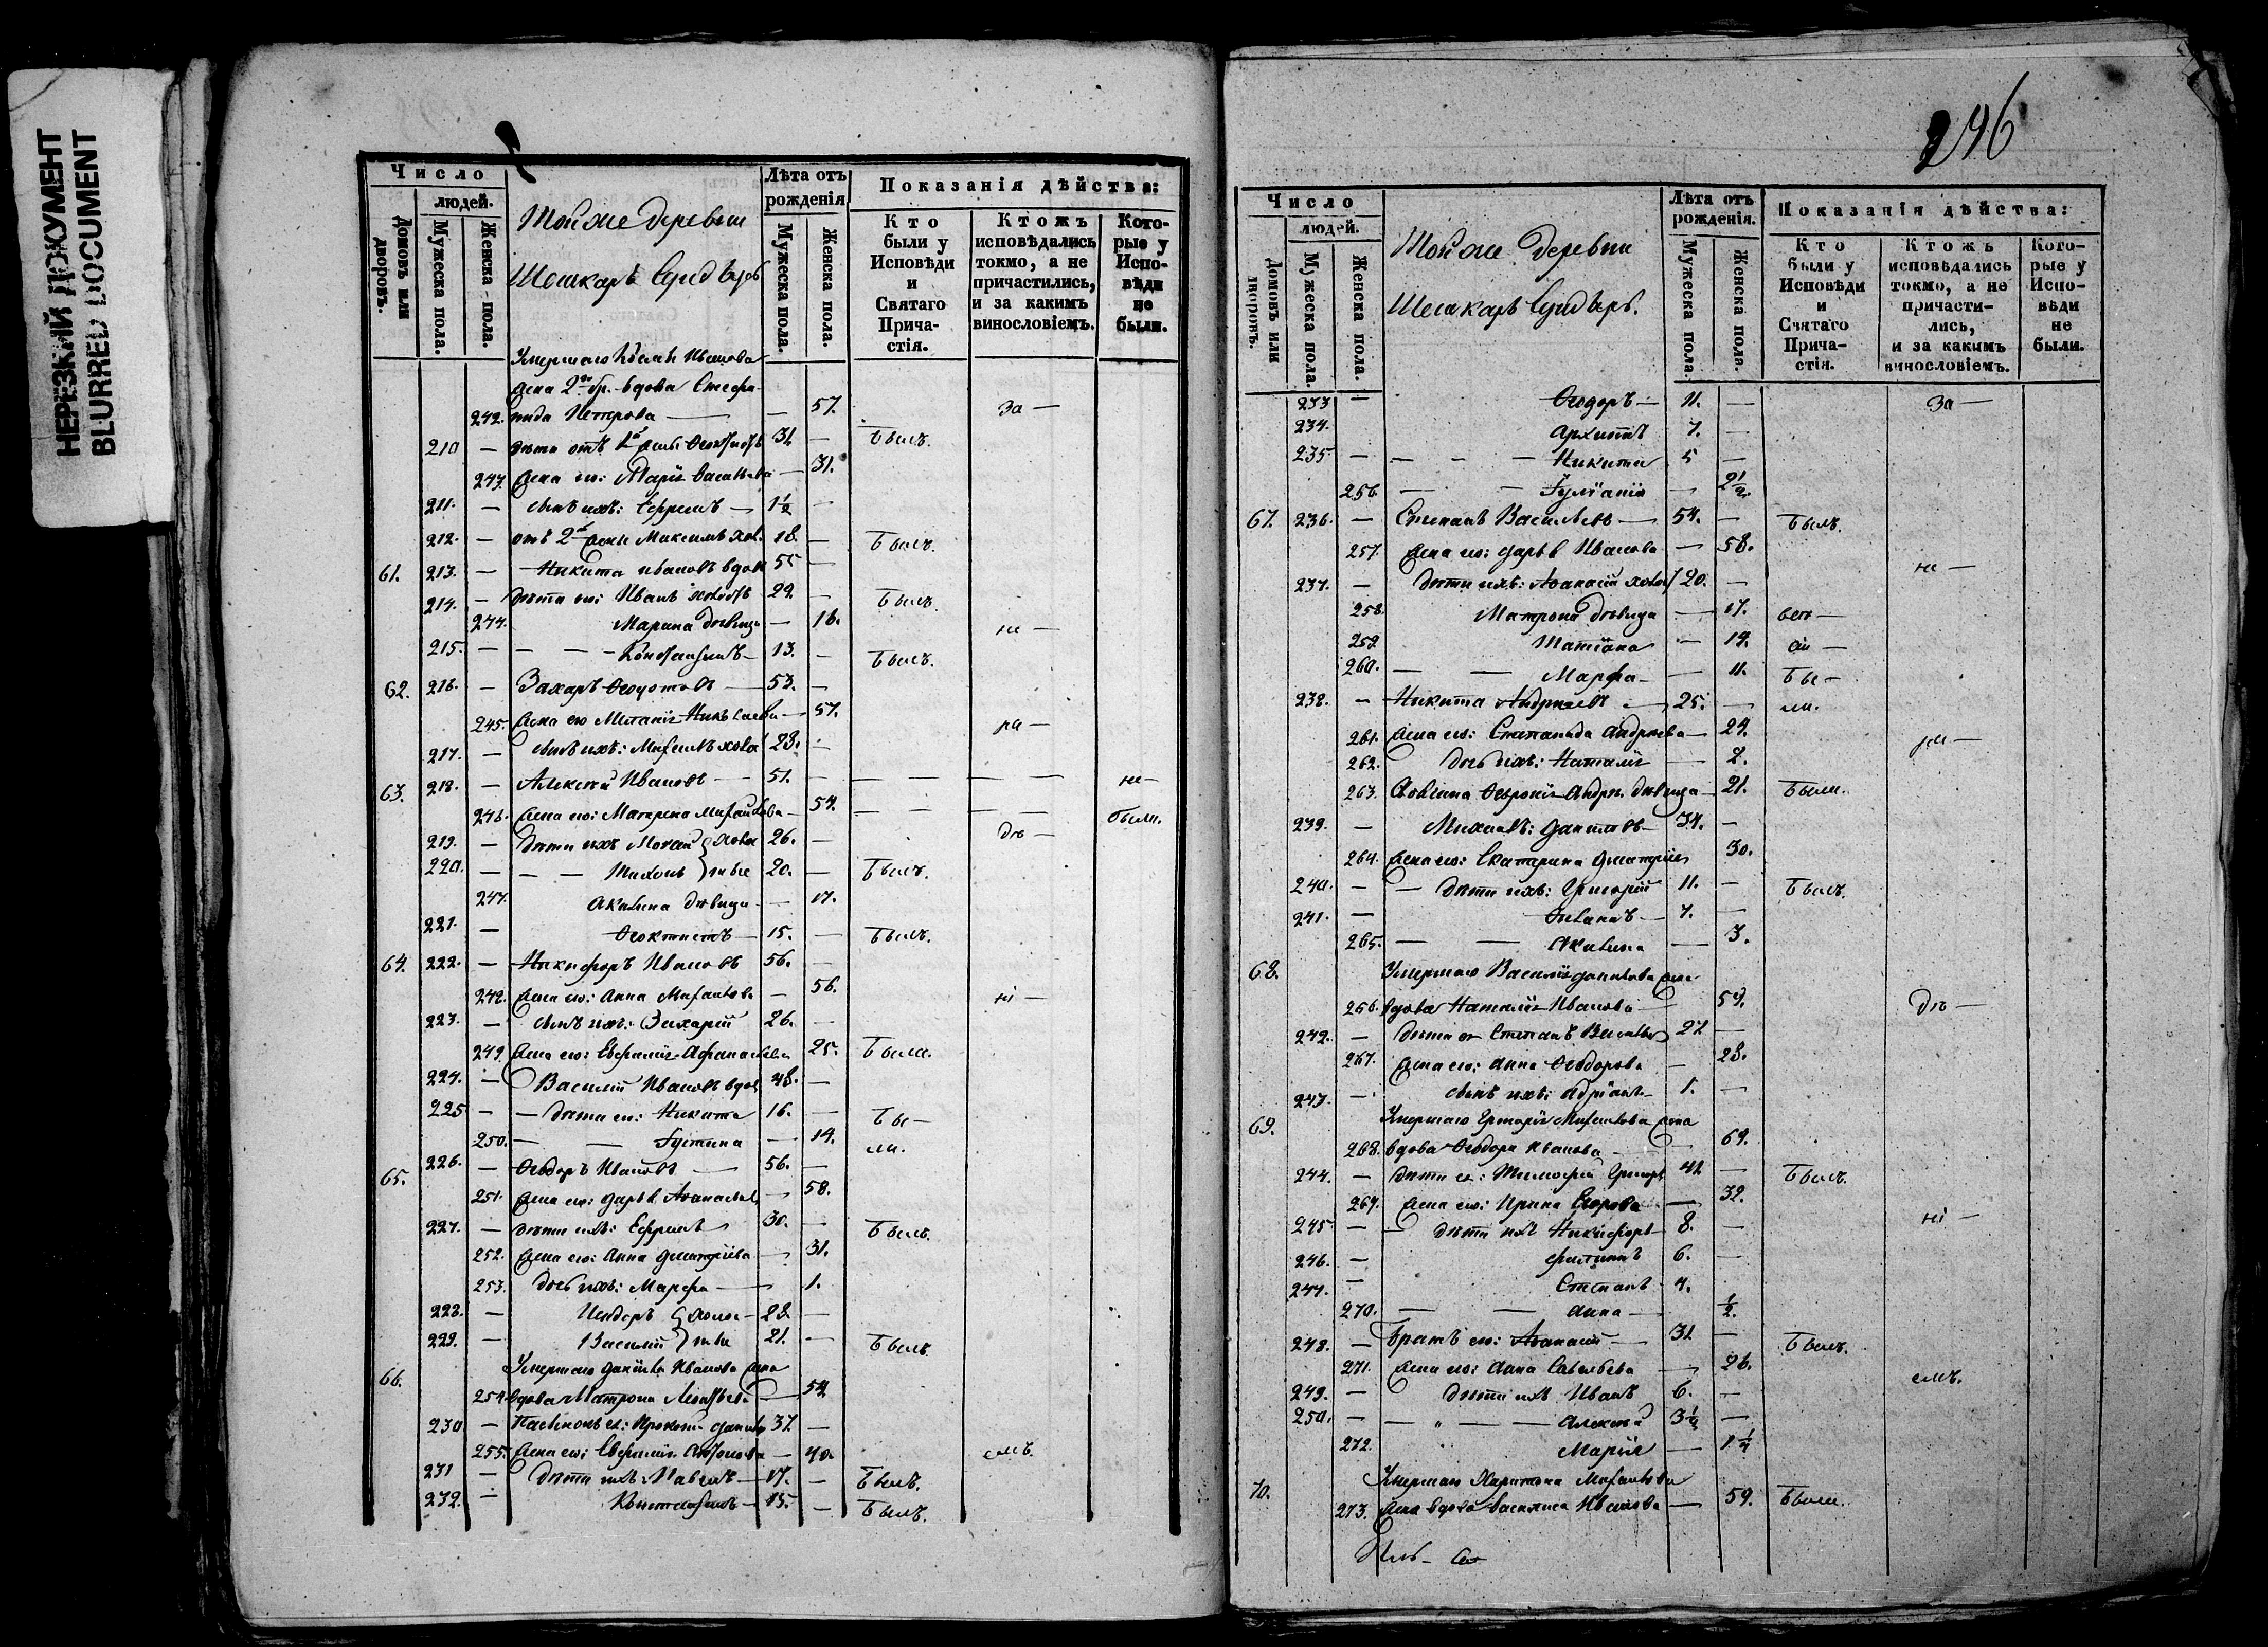 НЕРЕЗКИЙ ДОКУМЕНТ
BLURRED DOCUMENT
Число
людей.
Домовъ или дворовъ.
Мужеска пола.
Женска пола.
Тойже деревни
Лѣта отъ рожденія
Мужеска пола.
Женска пола.
Показанія дѣйства:
Кто были у Исповѣди и Святаго Причастія.
Ктожъ исповѣдались токмо, а не причастились, и за какимъ винословіемъ.
Которые у Исповѣди не были.
Умершаго Ивана Иванова
жена 2 бр. вдова Стефа-
242. нида Петрова — — 57. за —
210 — 31. — Былъ.
243. жена его: Марія Васильева — 31.
211. — сынъ ихъ: Ефремъ — 1½ —
212. — отъ 2й жены Максимъ хол. 18. — Былъ.
61. 213. — Никита Ивановъ вдов 55 —
214. — дѣти его: Иванъ холостъ 29. — Былъ.
244. Марина дѣвица — 16. не —
215. — — — Константинъ — 13. — Былъ.
62. 216. — Захаръ Ѳедотовъ — 53. —
245. жена его Меланія Николаева — 57. ра —
217. — сынъ ихъ: Михаилъ холос 23. —
63. 218. — Алексѣй Ивановъ — 51. — — — — — не —
246. жена его: Матрена Михайлова — 54. — — — — были.
219. — дѣти ихъ 26. — дѣ —
220. — — — Тихонъ 20. — Былъ.
247. Акилина дѣвица — 17.
221. — Ѳеоктистъ — 15. — Былъ.
64. 222. — Никифоръ Ивановъ 56. —
248. жена его: Анна Михайлова — 56. ні —
223. — сынъ ихъ: Захарій 26. —
249. жена его: Евфимія Афанасьева 25. Были.
224. — Василій Ивановъ вдов 48. —
225 — — дѣти его: Никита 16. — Бы —
250. — — Іустина — 14. ли.
65. 226. — Ѳеодоръ Ивановъ — 56. —
251. жена его: Дарья Аѳанасьева — 58.
227. — дѣти ихъ: Ефремъ 30. — Былъ.
252. жена его: Анна Дмитріева — 31.
253. дочь ихъ: Марфа — — 1.
228. — Исидоръ холос — 23. —
229. — Василій тые 21. — Былъ.
66. Умершаго Данила Иванова жена
254. вдова Матрона — 54.
230 — Пасынокъ ея: Прокопій 37 —
255. жена его: Евфимія Антонова — 40. емъ.
231 — дѣти ихъ: Павелъ — 17. — Былъ.
232. — Константинъ — 15. — Былъ.
246
Число
людей.
Домовъ или дворовъ.
Мужеска пола.
Женска пола.
Тойже деревни
Лѣта отъ рожденія.
Мужеска пола.
Женска пола.
Показанія дѣйства:
Кто были у Исповѣди и Святаго Причастія.
Ктожъ исповѣдались токмо, а не причастились, и за какимъ винословіемъ.
Которые у Исповѣди не были.
233 — Ѳеодоръ — 11. — за —
234. Архипъ 7. —
235 — — — — Никита 5 —
256 — — Іуліанія — 2½.
67. 236. — Степанъ Васильевъ — 54. — Былъ.
257. жена его: Дарья Иванова — 58. не —
237. — дѣти ихъ: Аѳанасій холос 20. —
258. Матрона дѣвица — 17. всѣ —
259 Татіана — 14. сіи —
260. — — Марфа — — 11. Бы —
238. — Никита Андреевъ — 25. — ли.
261. жена его: Степанида Андреева — 24.
262. дочь ихъ: Наталія — 2.
263. Ѳевронія Андре. дѣвица — 21. Были.
239. — Михаилъ: Даниловъ — 34. —
264. жена его: Екатерина Дмитріева 30.
240. — — дѣти ихъ: Григорій 11. — Былъ.
241. — Степанъ — 7. —
265. — — Акилина — 3.
68. Умершаго Василія Данилова жена
266. вдова Наталія Иванова — 54. дѣ —
242. — дѣти ея Степанъ Васильевъ 27 —
267. жена его: Анна Ѳеодорова — 28.
243. — сынъ ихъ: Адріанъ — 1. —
69. Умершаго Григорія Михайлова жена
268. вдова Ѳеодора Иванова — 64.
244. — дѣти ея: Тимофей Григорьевъ 41 — Былъ.
269. жена его: Ирина Егорова — 32.
245 — — дѣти ихъ Никифоръ — 8. — ні —
246. — Филиппъ 6. —
247. — Степанъ 4.
270. — — Анна — ½.
248. — Братъ его: Аѳанасій — 31. — Былъ.
271. жена его: Анна Савельева — 26.
249. — дѣти ихъ Иванъ 6. — емъ.
250. — — — Алексѣй 3½ —
272. Марія — 1¼
70. Умершаго Харитона Михайлова
273. жена вдова Василиса Иванова — 59. Были.